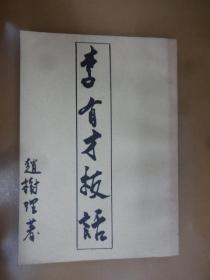 李有才板話
趙樹理著